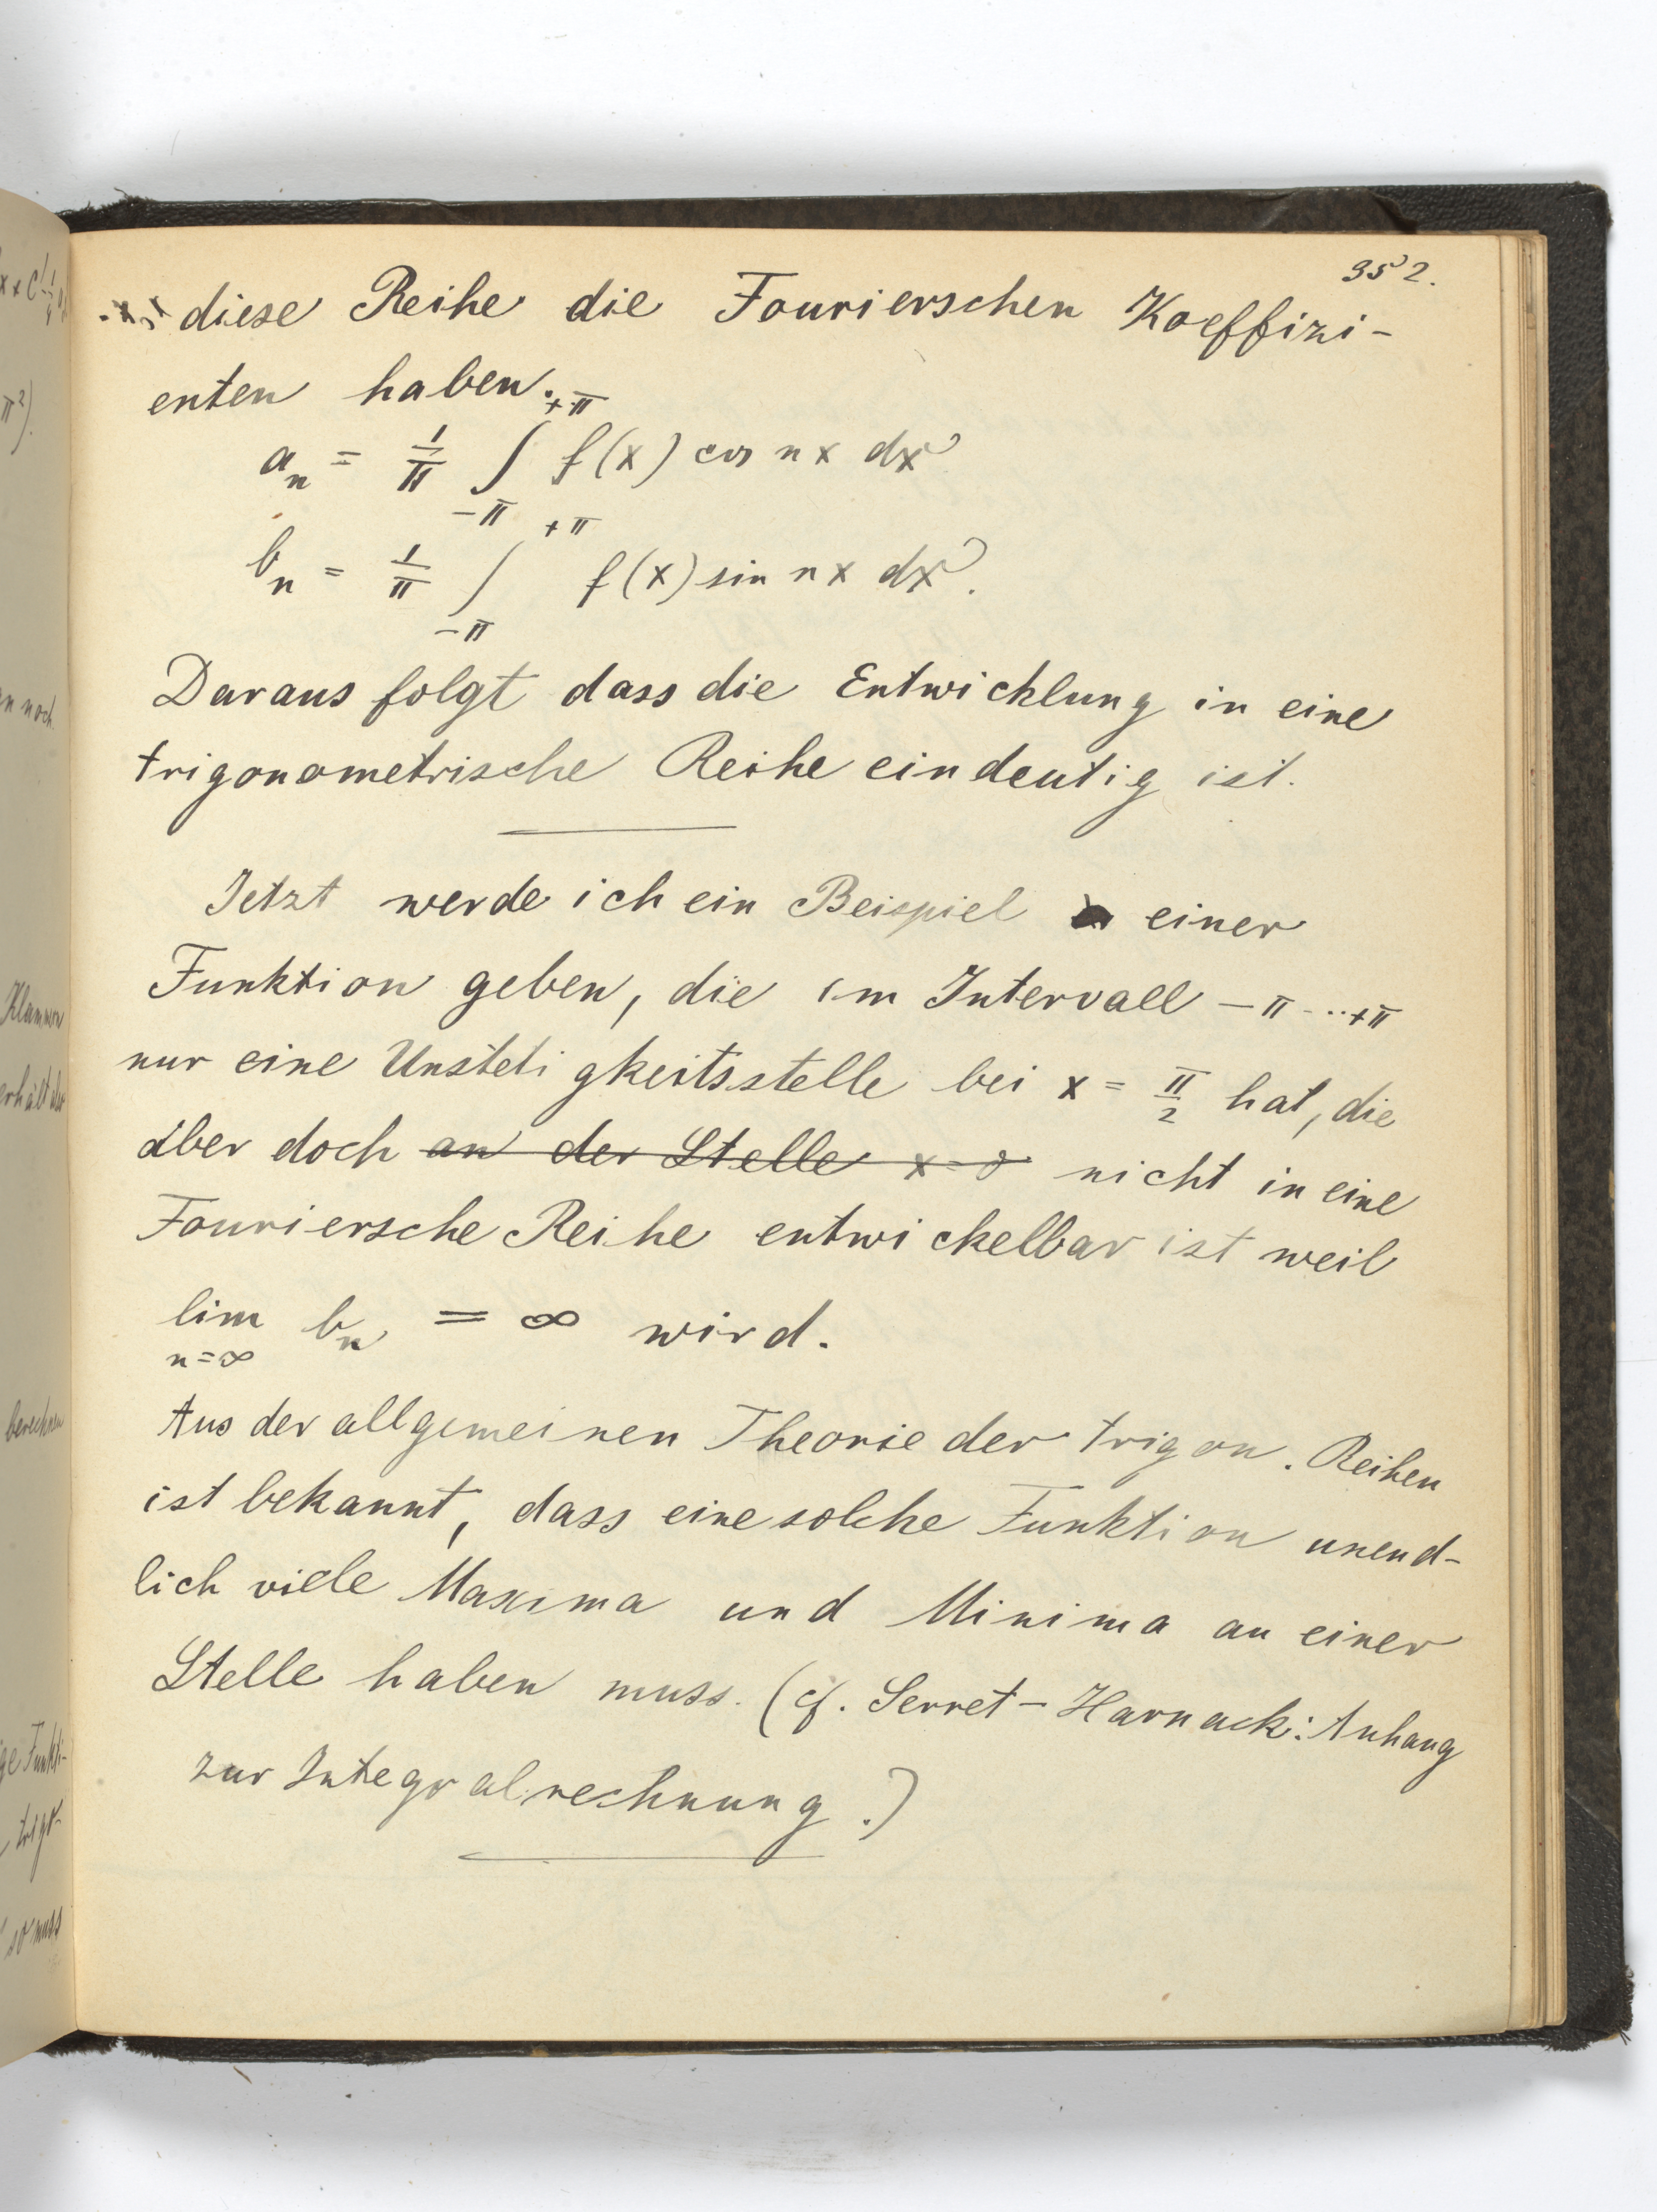 352.
diese Reihe die Fourierschen Koeffizi-
enten haben.
a_n = 1/π ∫_{-π}^{+π} f(x) cos nx dx
b_n = 1/π ∫_{-π}^{+π} f(x) sin nx dx.
Daraus folgt dass die Entwicklung in eine
trigonometrische Reihe eindeutig ist.
Jetzt werde ich ein Beispiel einer
Funktion geben, die im Intervall -π...+π
nur eine Unstetigkeitsstelle bei x = π/2 hat, die
aber doch an der Stelle x = 0 nicht in eine
Fouriersche Reihe entwickelbar ist weil
lim_{n=∞} b_n = ∞ wird.
Aus der allgemeinen Theorie der trigon. Reihen
ist bekannt, dass eine solche Funktion unend-
lich viele Maxima und Minima an einer
Stelle haben muss. (cf. Serret-Harnack: Anhang
zur Integralrechnung.)